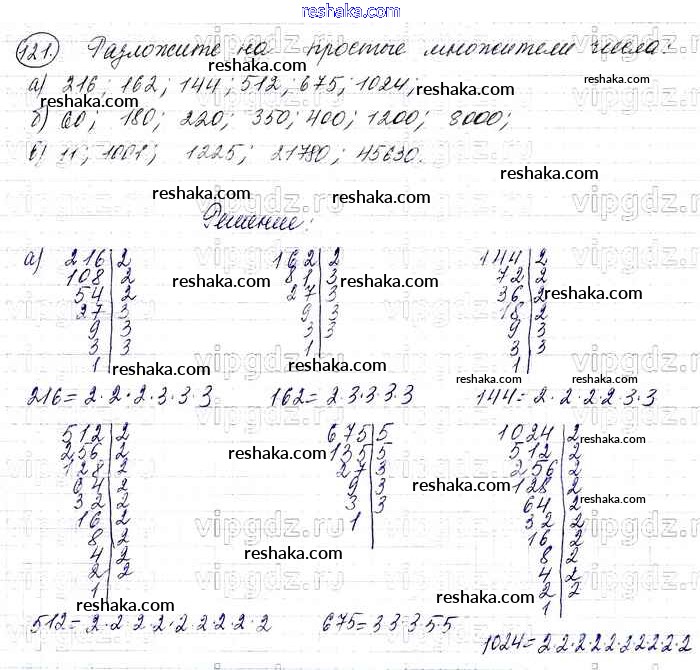 reshaka.com
121. Разложите на простые множители числа:
а) 216; 162; 144; 512; 675; 1024;
б) 60; 180; 220; 350; 400; 1200; 8000;
в) 11; 1001; 1225; 21780; 45630.
Решение:
а) 216 | 2
108 | 2
54 | 2
27 | 3
9 | 3
3 | 3
1
216 = 2·2·2·3·3·3
162 | 2
81 | 3
27 | 3
9 | 3
3 | 3
1
162 = 2·3·3·3·3
144 | 2
72 | 2
36 | 2
18 | 2
9 | 3
3 | 3
1
144 = 2·2·2·2·3·3
512 | 2
256 | 2
128 | 2
64 | 2
32 | 2
16 | 2
8 | 2
4 | 2
2 | 2
1
512 = 2·2·2·2·2·2·2·2·2
675 | 5
135 | 5
27 | 3
9 | 3
3 | 3
1
675 = 3·3·3·5·5
1024 | 2
512 | 2
256 | 2
128 | 2
64 | 2
32 | 2
16 | 2
8 | 2
4 | 2
2 | 2
1
1024 = 2·2·2·2·2·2·2·2·2·2
reshaka.com
vipgdz.ru